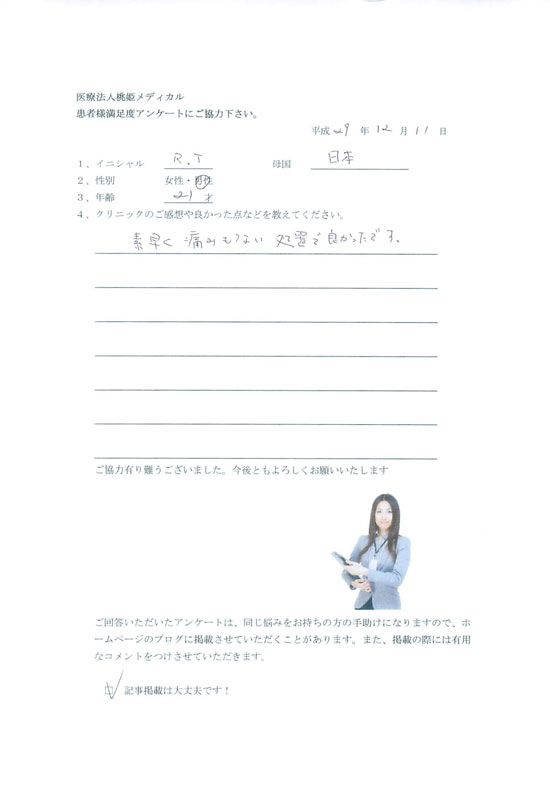 医療法人桃姫メディカル
患者様満足度アンケートにご協力下さい。
平成 29 年 12 月 11 日
1、イニシャル R.T 母国 日本
2、性別 女性・男性
3、年齢 21 才
4、クリニックのご感想や良かった点などを教えてください。
素早く痛みもない処置で良かったです。
ご協力有り難うございました。今後ともよろしくお願いいたします
ご回答いただいたアンケートは、同じ悩みをお持ちの方の手助けになりますので、ホ
ームページのブログに掲載させていただくことがあります。また、掲載の際には有用
なコメントをつけさせていただきます。
記事掲載は大丈夫です！